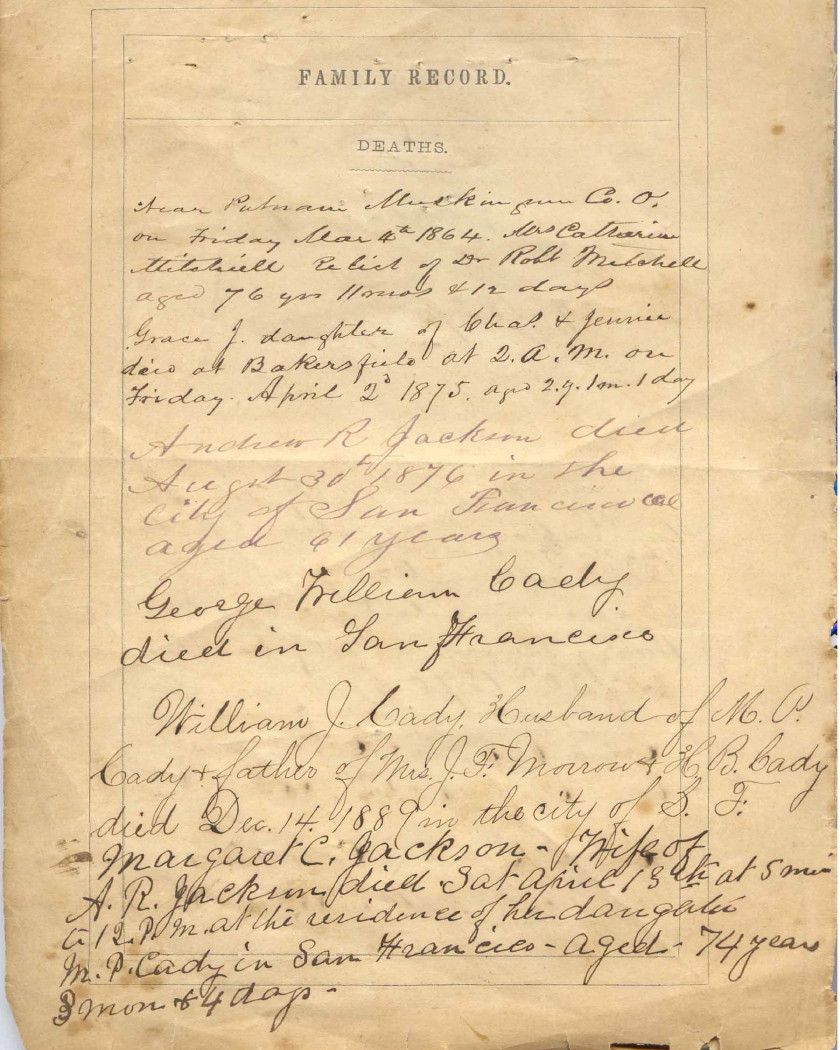 FAMILY RECORD.
DEATHS.
Near Putnam Muskingum Co. O.
on Friday Mar 4th 1864. Mrs Catherine
Mitchell Relict of Dr Robt Mitchell
aged 76 yrs 11 mos & 12 days
Grace J. daughter of Chas. & Jennie
died at Bakersfield at 2. A. M. on
Friday. April 2d 1875. aged 2.y. 1m. 1 day
Andrew R Jackson died
Augst 30th 1876 in the
city of San Francisco Cal
aged 61 years
George William Cady
died in San Francisco
William J. Cady. Husband of M. P.
Cady & father of Mrs. J. F. Morrow & H. B. Cady
died Dec. 14. 1889 in the city of S. F.
Margaret C. Jackson - Wife of
A. R. Jackson died Sat April 13th at 5 min
to 12. P. M. at the residence of her daughter
M. P. Cady in San Francico - aged - 74 years
3 mon & 4 days -